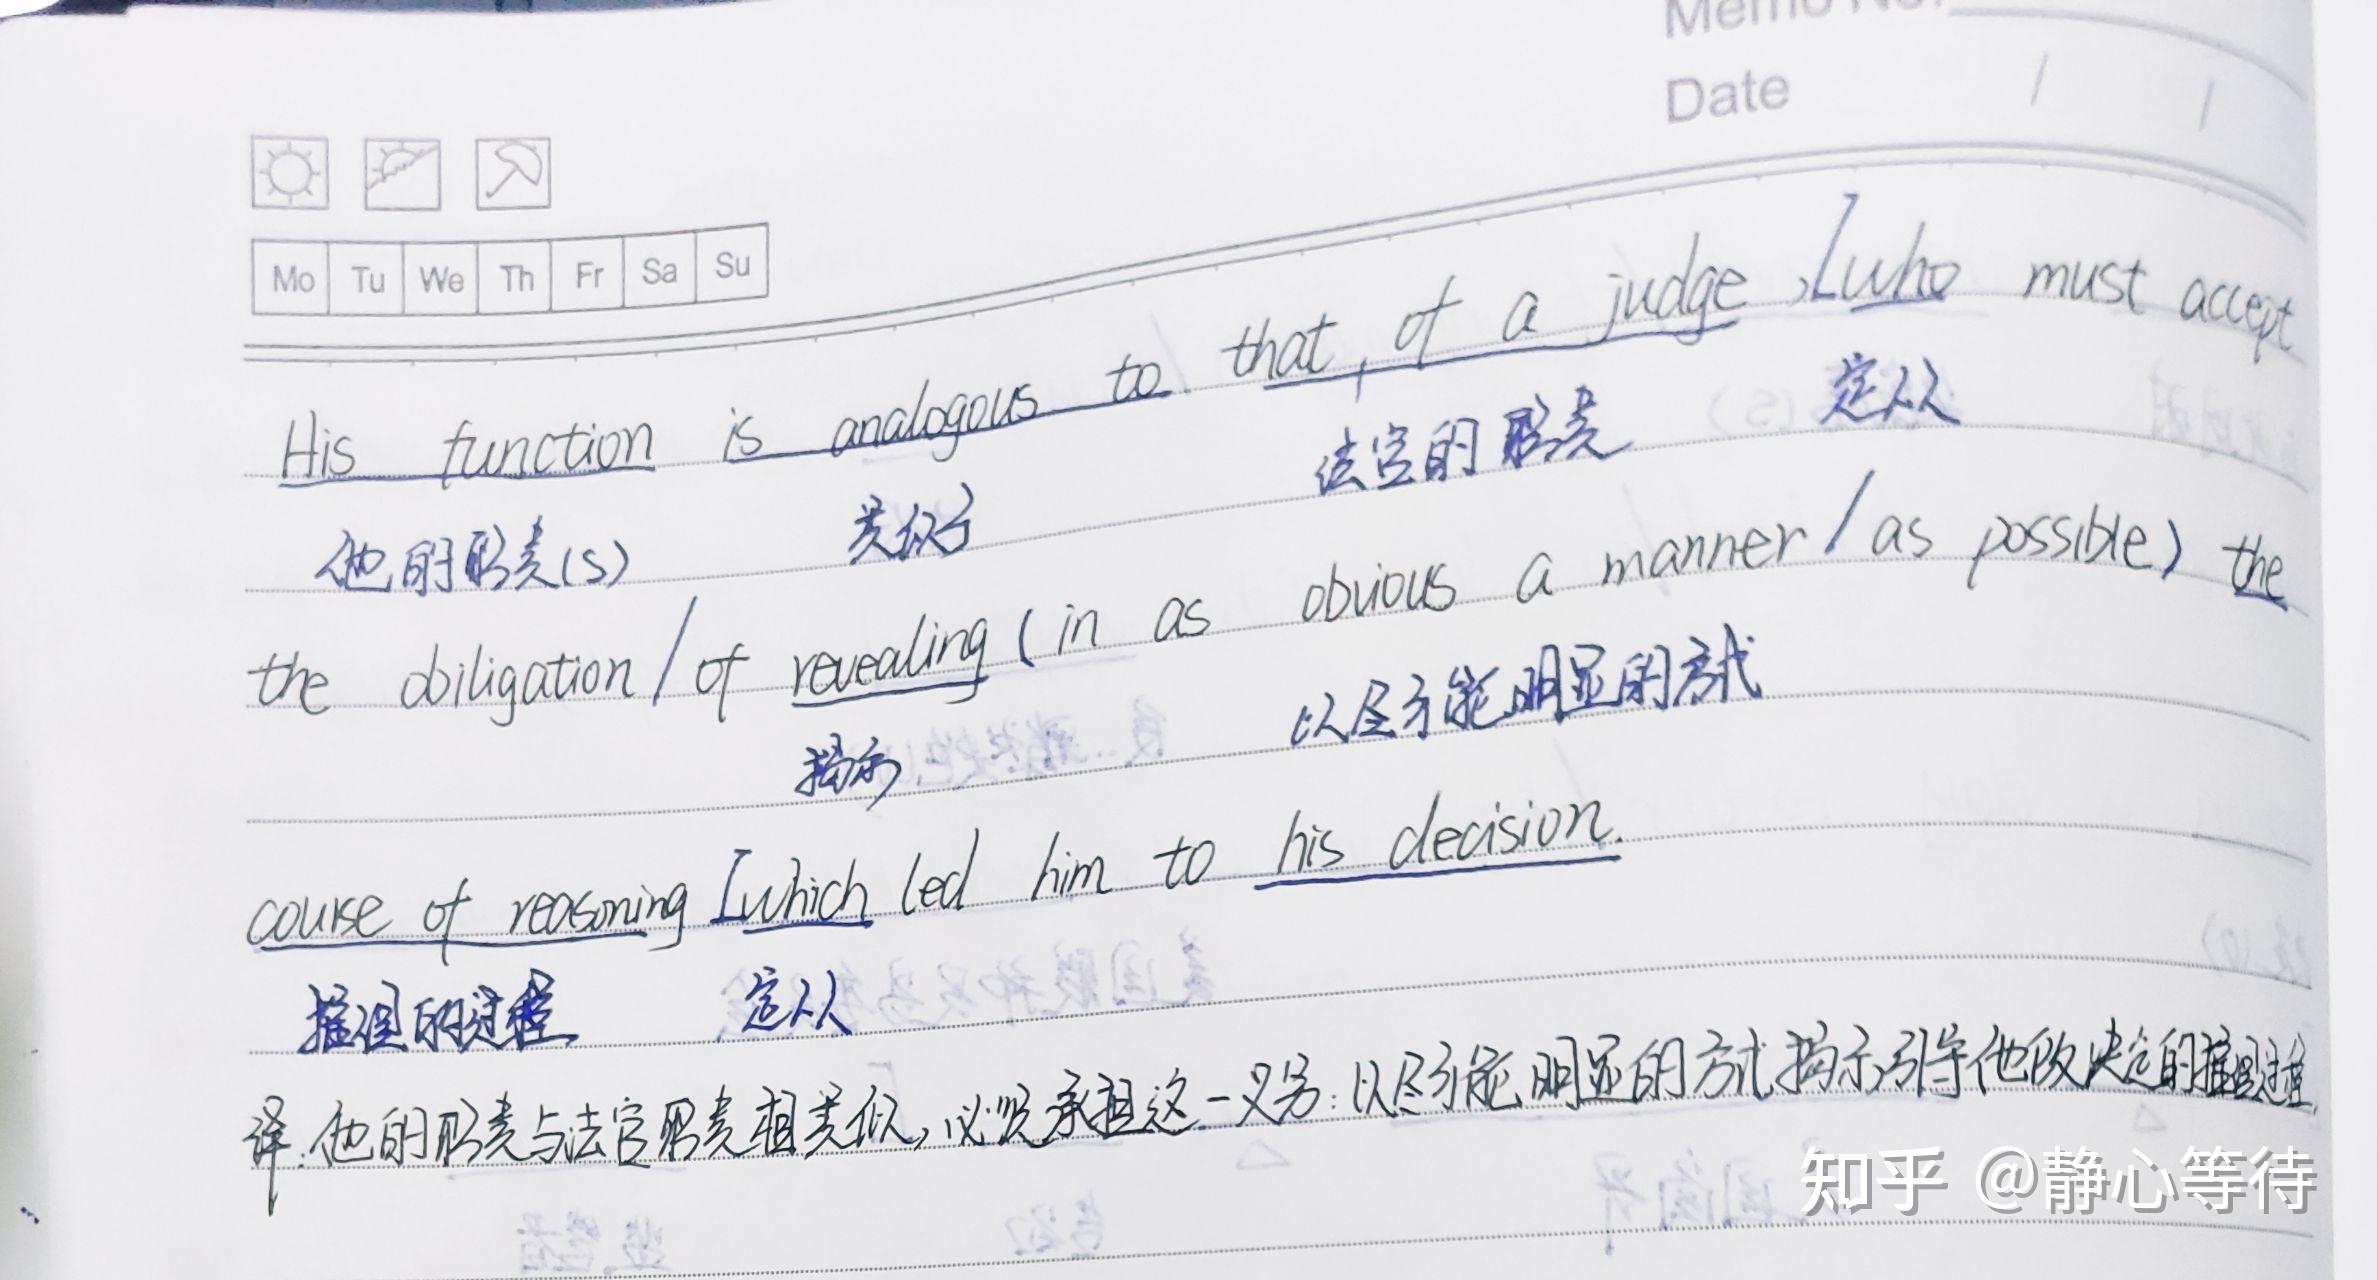 Memo No.
Date / /
Mo Tu We Th Fr Sa Su
His function is analogous to that, of a judge, [who must accept
他的职责(S) 类似于 法官的职责 定从
the obiligation / of revealing (in as obvious a manner / as possible) the
揭示 以尽可能明显的方式
course of reasoning [which led him to his decision.
推理的过程 定从
译:他的职责与法官职责相类似,必须承担这一义务:以尽可能明显的方式揭示引导他做决定的推理过程.
知乎 @静心等待